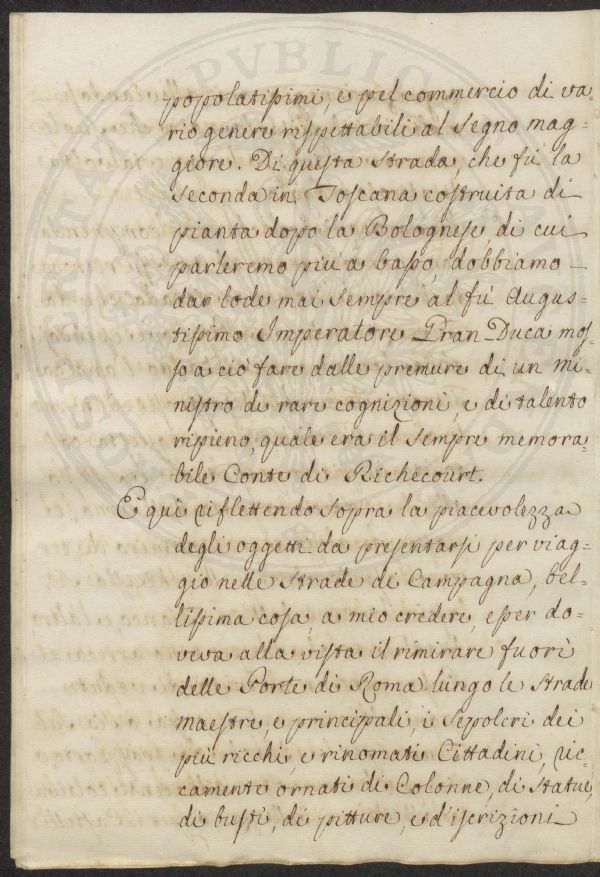 popolatissimi, e pel commercio di va=
rio genere rispettabili al segno mag=
giore. Di questa strada, che fù la
seconda in Toscana costruita di
pianta dopo la Bolognese di cui
parleremo più a basso, dobbiamo
dar lode mai sempre al fù Augus=
tissimo Imperatore Gran Duca mos=
so a ciò fare dalle premure di un mi=
nistro di rare cognizioni, e di talento
ripieno, quale era il sempre memora=
bile Conte di Richecourt.
E qui riflettendo sopra la piacevolezza
degli oggetti da presentarsi per viag=
gio nelle strade di Campagna, bel=
lissima cosa, a mio credere, esser do=
veva alla vista il rimirare fuori
delle Porte di Roma lungo le strade
maestre, e principali, i Sepolcri dei
più ricchi, e rinomati Cittadini, ric=
camente ornati di Colonne, di Statue,
di busti, di pitture, e d'iscrizioni